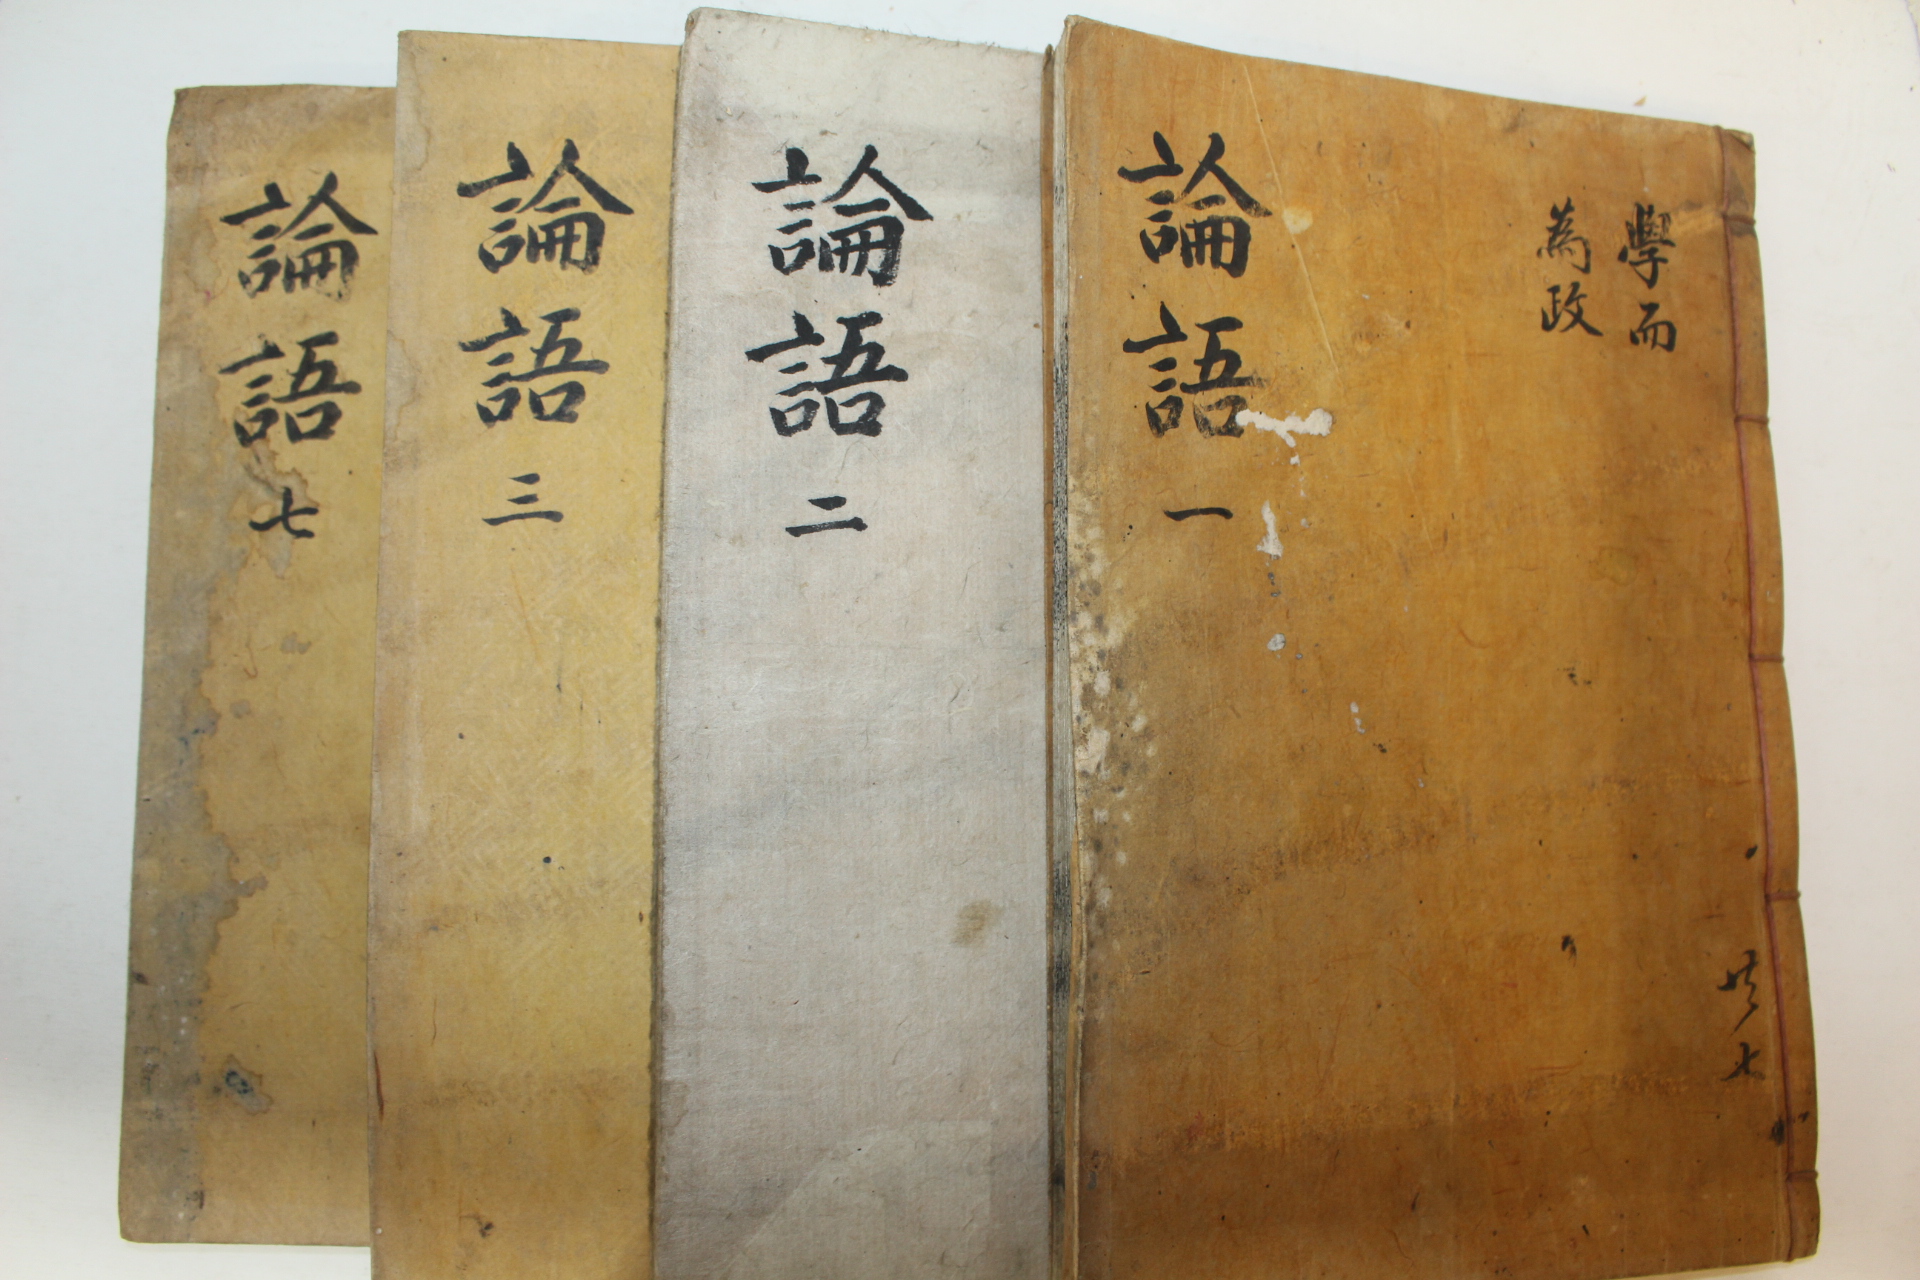 學而
為政
論語 一
共七
論語 二
論語 三
論語 七